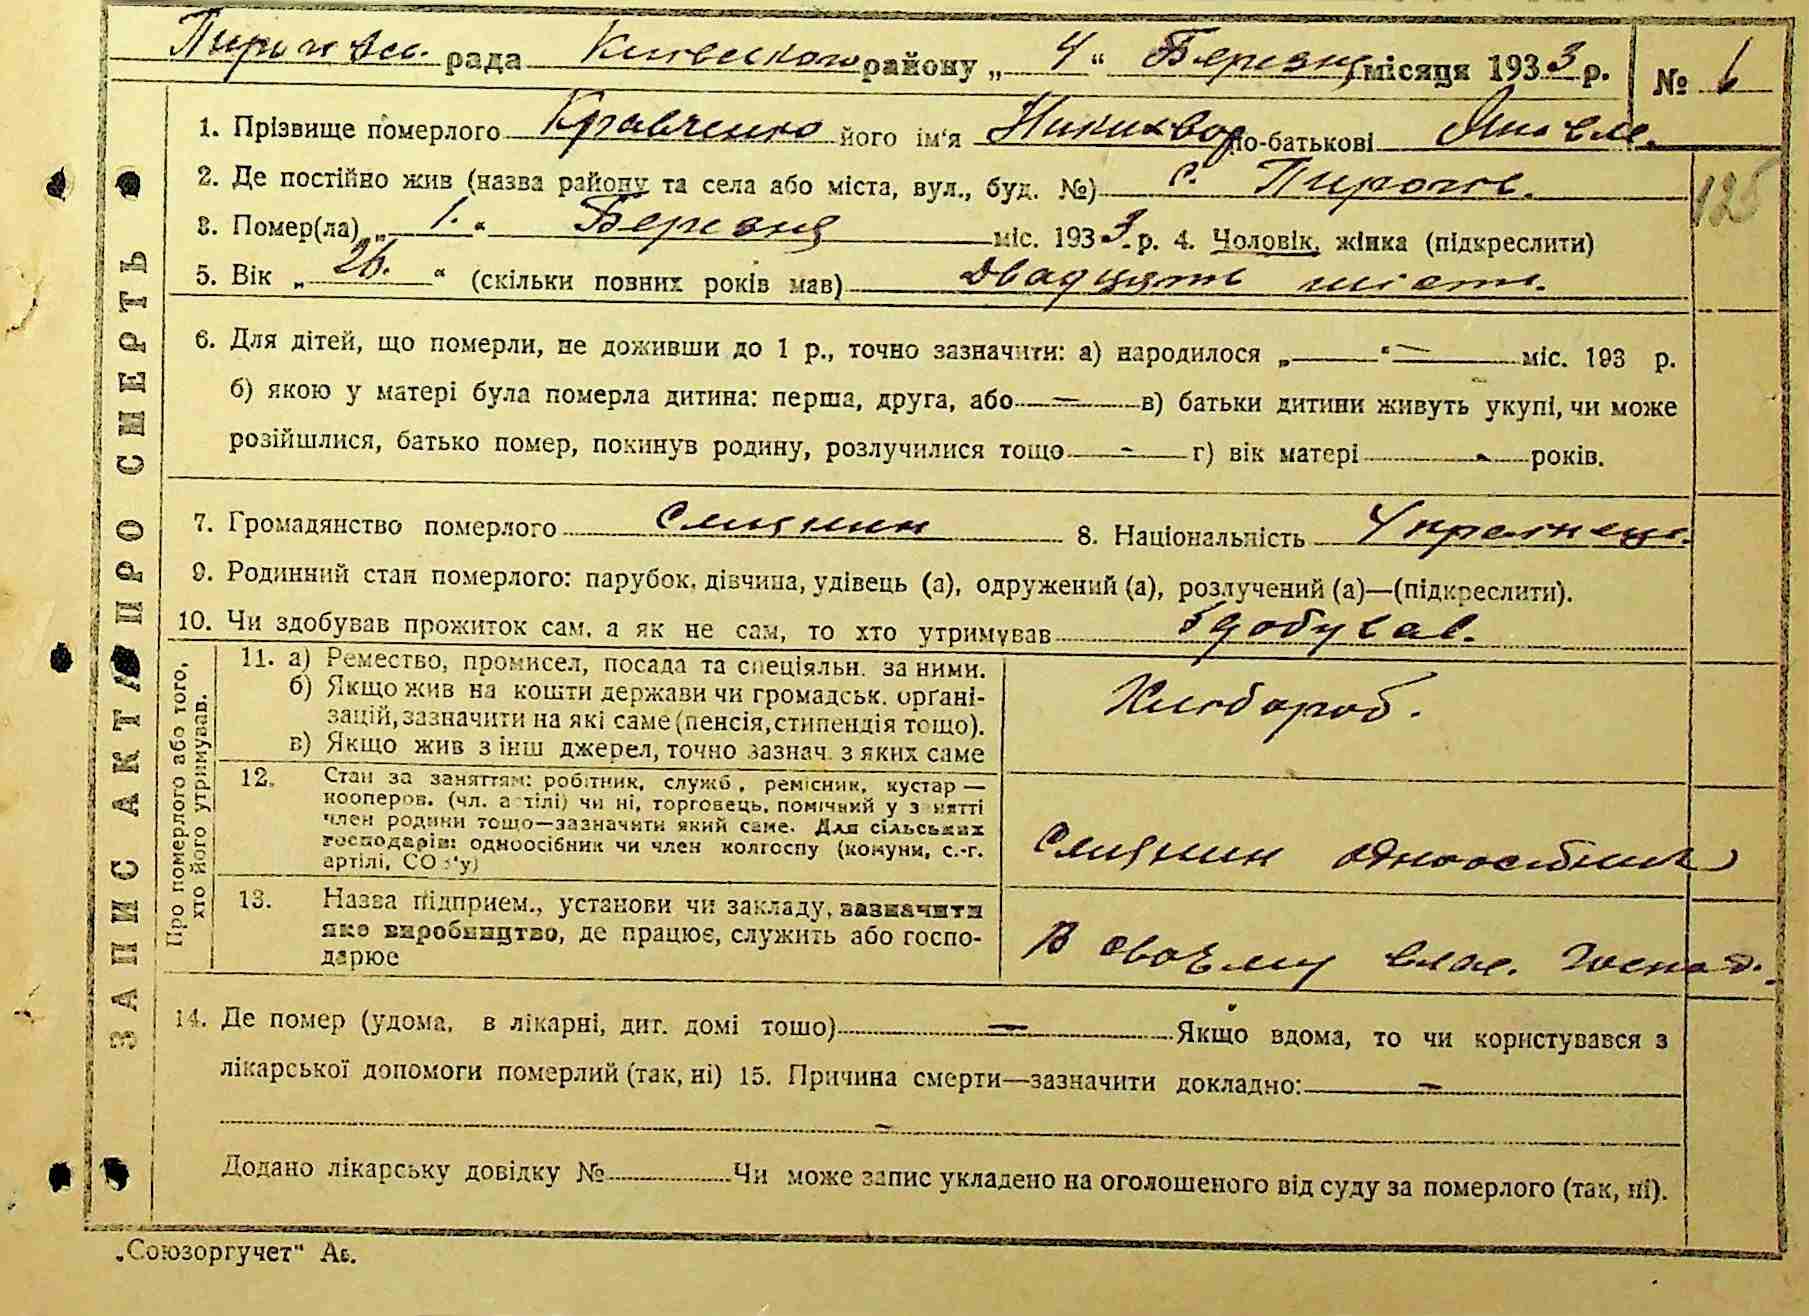 Пирогівс. рада Київського району „ 4 “ Березня місяця 1933 р. № 1
1. Прізвище померлого Кравченко його ім'я Никихвор по-батькові Яковл.
2. Де постійно жив (назва району та села або міста, вул., буд. №) с. Пирогів.
125
3. Помер(ла) „ 1. “ Березня міс. 1933 р. 4. Чоловік, жінка (підкреслити)
5. Вік „ 26. “ (скільки повних років мав) двадцять шість.
6. Для дітей, що померли, не доживши до 1 р., точно зазначити: а) народилося „ — “ — міс. 193 р.
б) якою у матері була померла дитина: перша, друга, або — в) батьки дитини живуть укупі, чи може
розійшлися, батько помер, покинув родину, розлучилися тощо - г) вік матері - років.
7. Громадянство померлого Селянин 8. Національність Українець.
9. Родинний стан померлого: парубок, дівчина, удівець (а), одружений (а), розлучений (а)—(підкреслити).
10. Чи здобував прожиток сам, а як не сам, то хто утримував Здобував.
Про померлого або того, хто його утримував.
11. а) Ремество, промисел, посада та спеціяльн. за ними.
б) Якщо жив на кошти держави чи громадськ. органі-
зацій, зазначити на які саме (пенсія, стипендія тощо).
в) Якщо жив з інш джерел, точно зазнач. з яких саме
Хлібороб.
12. Стан за заняттям: робітник, служб., ремісник, кустар —
кооперов. (чл. артілі) чи ні, торговець, помічний у занятті
член родини тощо—зазначити який саме. Для сільських
господарів: одноосібник чи член колгоспу (комуни, с.-г.
артілі, СОЗ'у)
Селянин одноосібник
13. Назва підприєм., установи чи закладу, зазначити
яке виробництво, де працює, служить або госпо-
дарює
В своєму влас. Господ.
14. Де помер (удома, в лікарні, дит. домі тощо) — Якщо вдома, то чи користувався з
лікарської допомоги померлий (так, ні) 15. Причина смерти—зазначити докладно: —
-
Додано лікарську довідку № Чи може запис укладено на оголошеного від суду за померлого (так, ні).
ЗАПИС АКТА ПРО СМЕРТЬ
„Союзоргучет“ Ав.